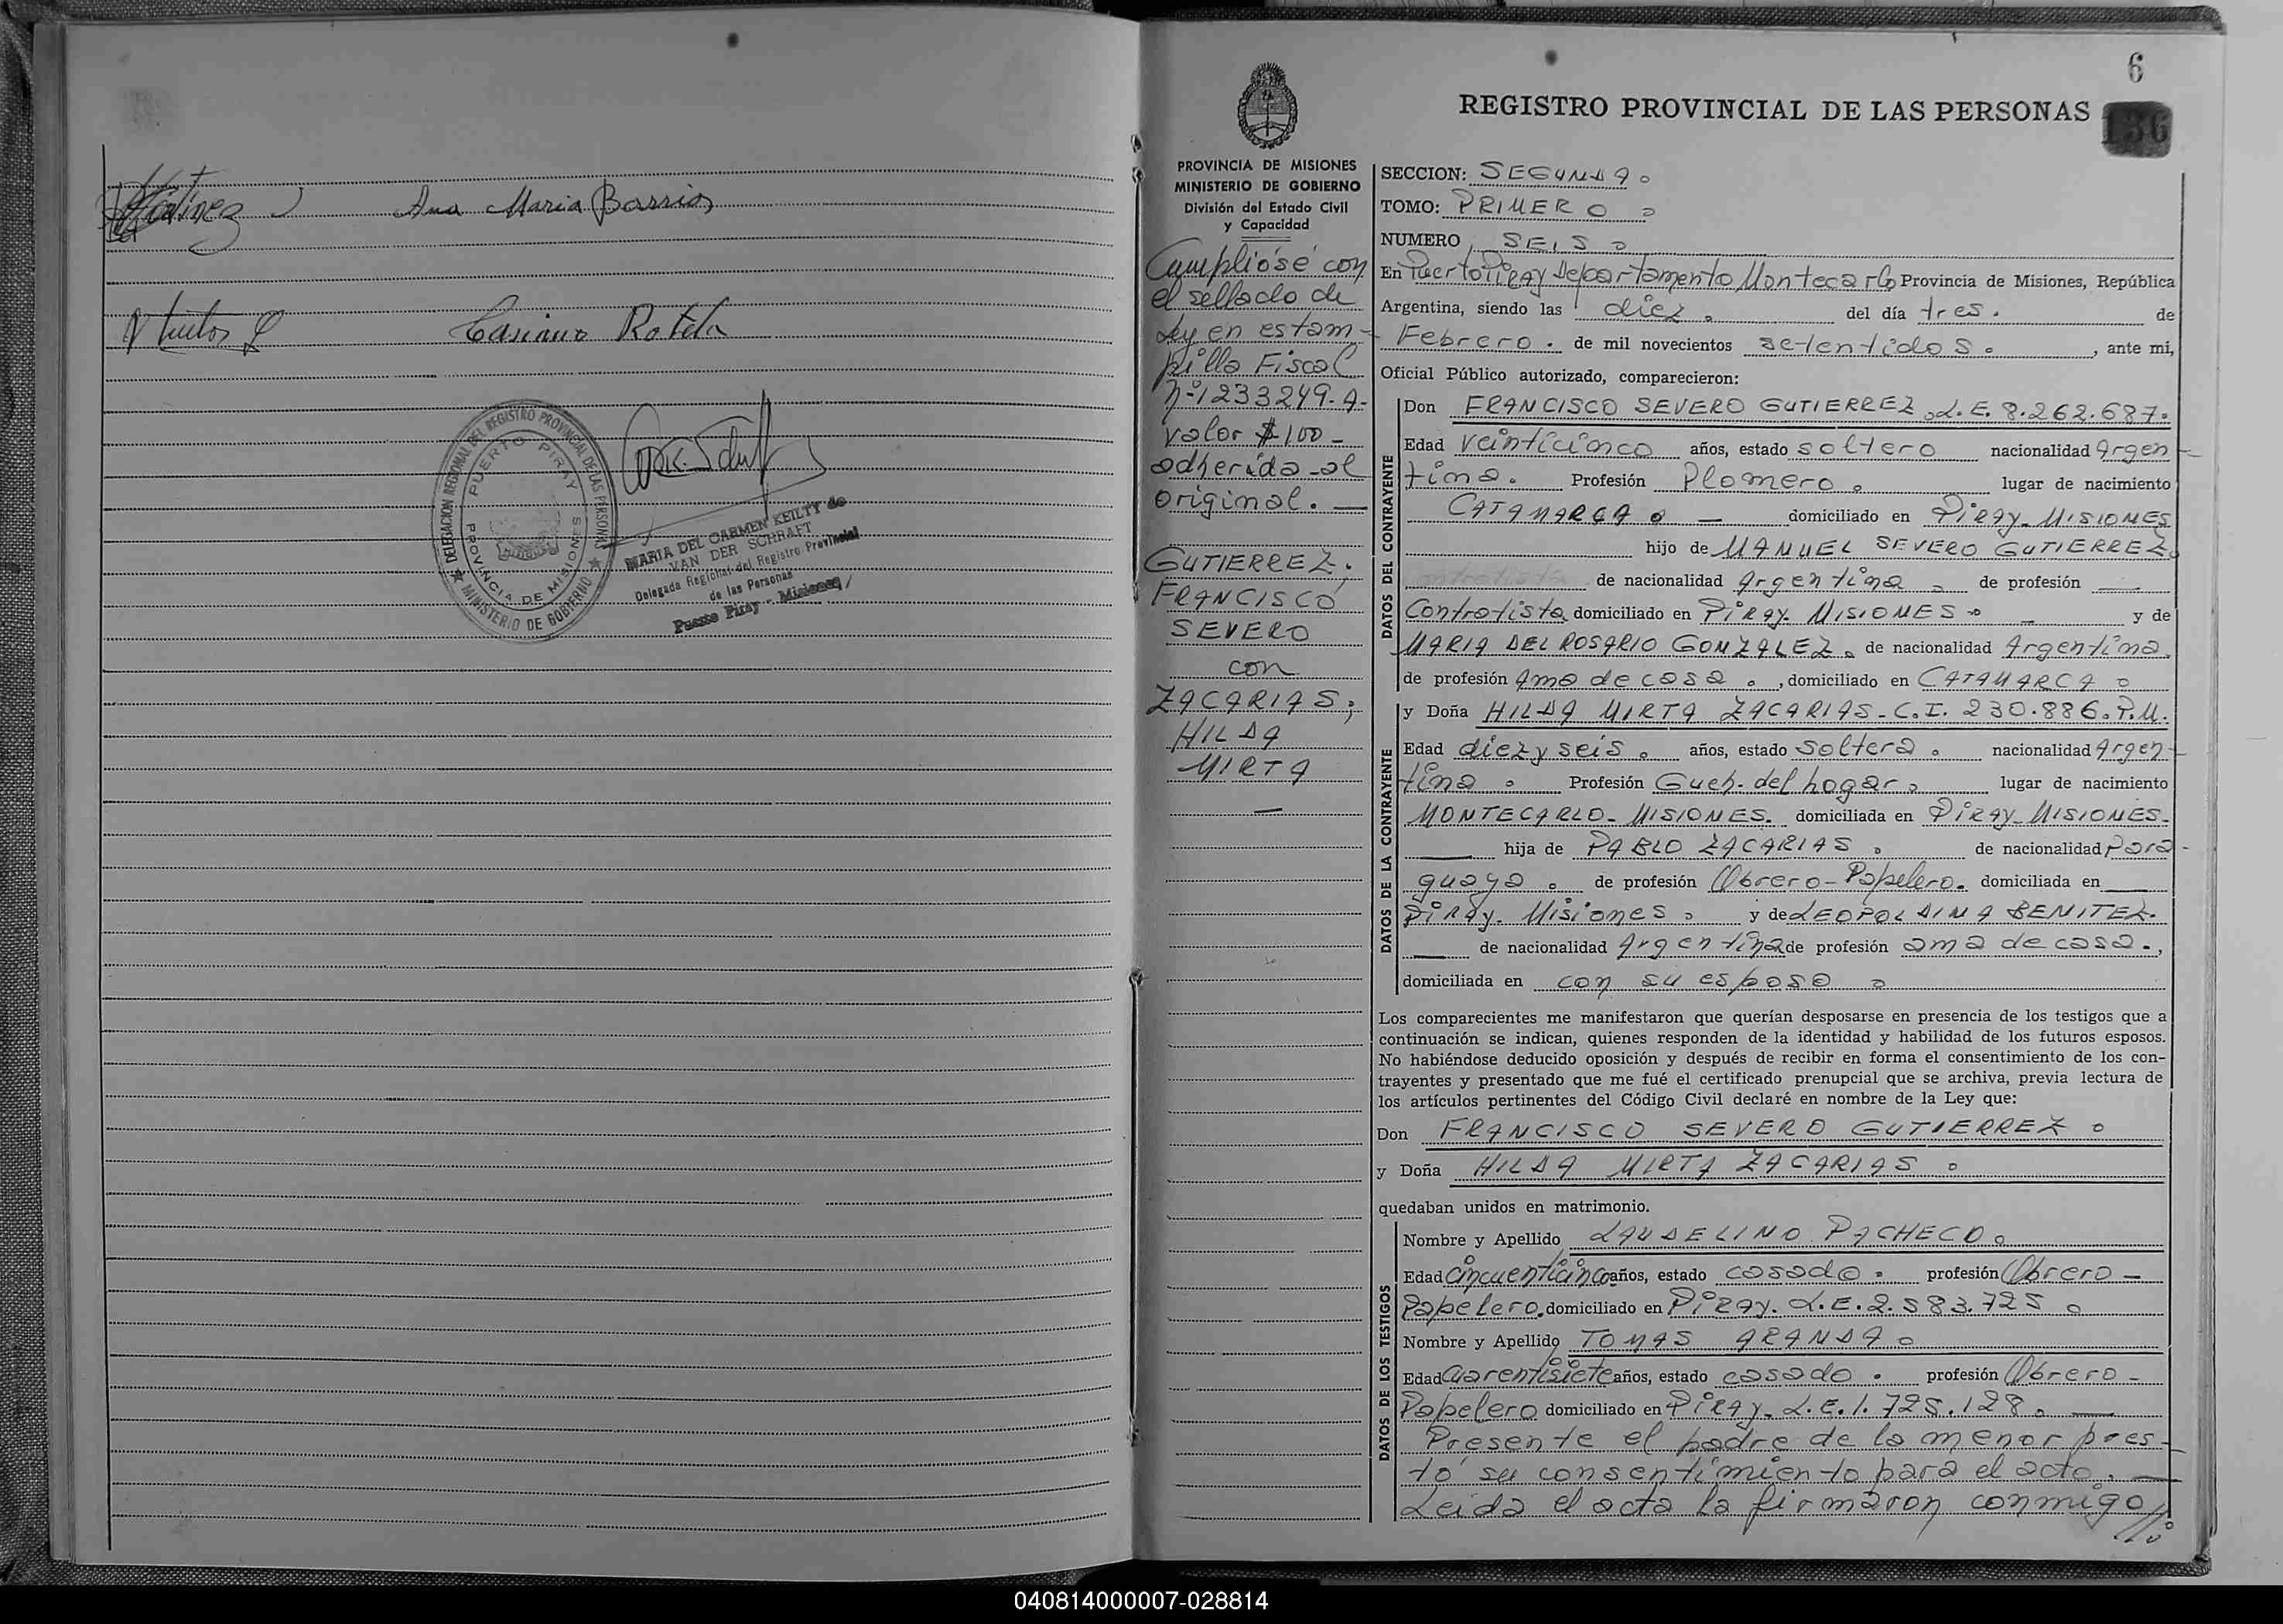 Martinez
Ana Maria Barrios
Casiano Rotela
DELEGACION REGIONAL DEL REGISTRO PROVINCIAL DE LAS PERSONAS
PUERTO PIRAY
PROVINCIA DE MISIONES
MINISTERIO DE GOBIERNO
MARIA DEL CARMEN KEILTY de
VAN DER SCHRAFT
Delegada Regional del Registro Provincial
de las Personas
Puerto Piray - Misiones
6
REGISTRO PROVINCIAL DE LAS PERSONAS
136
PROVINCIA DE MISIONES
MINISTERIO DE GOBIERNO
División del Estado Civil
y Capacidad
Cumplióse con
el sellado de
Ley en estam-
pilla Fiscal
Nº 1233249-A-
valor $100-
adherida al
original. —
GUTIERREZ;
FRANCISCO
SEVERO
con
ZACARIAS;
HILDA
MIRTA
—
SECCION: SEGUNDA.
TOMO: PRIMERO
NUMERO SEIS
En Puerto Piray Departamento Montecarlo Provincia de Misiones, República
Argentina, siendo las diez. del día tres. de
Febrero. de mil novecientos setentidos. , ante mi,
Oficial Público autorizado, comparecieron:
DATOS DEL CONTRAYENTE
Don FRANCISCO SEVERO GUTIERREZ. L.E. 8.262.687.
Edad veinticinco años, estado soltero nacionalidad Argen-
tina. Profesión Plomero. lugar de nacimiento
CATAMARCA. — domiciliado en PIRAY-MISIONES
hijo de MANUEL SEVERO GUTIERREZ.
de nacionalidad Argentina. de profesión —
Contratista domiciliado en PIRAY. MISIONES. — y de
MARIA DEL ROSARIO GONZALEZ. de nacionalidad Argentina.
de profesión Ama de casa. , domiciliado en CATAMARCA.
DATOS DE LA CONTRAYENTE
y Doña HILDA MIRTA ZACARIAS-C.I. 230.886.P.M.
Edad diezyseis. años, estado soltera. nacionalidad Argen-
tina. Profesión Queh. del hogar. lugar de nacimiento
MONTECARLO-MISIONES. domiciliada en PIRAY-MISIONES.
— hija de PABLO ZACARIAS. de nacionalidad Para-
guaya. de profesión Obrero-Papelero. domiciliada en —
Piray. Misiones. y de LEOPOLDINA BENITEZ.
— de nacionalidad Argentina de profesión ama de casa.,
domiciliada en con su esposo.
Los comparecientes me manifestaron que querían desposarse en presencia de los testigos que a
continuación se indican, quienes responden de la identidad y habilidad de los futuros esposos.
No habiéndose deducido oposición y después de recibir en forma el consentimiento de los con-
trayentes y presentado que me fué el certificado prenupcial que se archiva, previa lectura de
los artículos pertinentes del Código Civil declaré en nombre de la Ley que:
Don FRANCISCO SEVERO GUTIERREZ.
y Doña HILDA MIRTA ZACARIAS.
quedaban unidos en matrimonio.
DATOS DE LOS TESTIGOS
Nombre y Apellido LAUDELINO PACHECO.
Edad Cincuenticinco años, estado casado. profesión Obrero-
Papelero. domiciliado en Piray. L.E. 2.583.725.
Nombre y Apellido TOMAS ARANDA.
Edad Cuarentisiete años, estado casado. profesión Obrero-
Papelero domiciliado en Piray. L.E. 1.725.128. —
Presente el padre de la menor pres-
tó su consentimiento para el acto. —
Leida el acta la firmaron conmigo
040814000007-028814